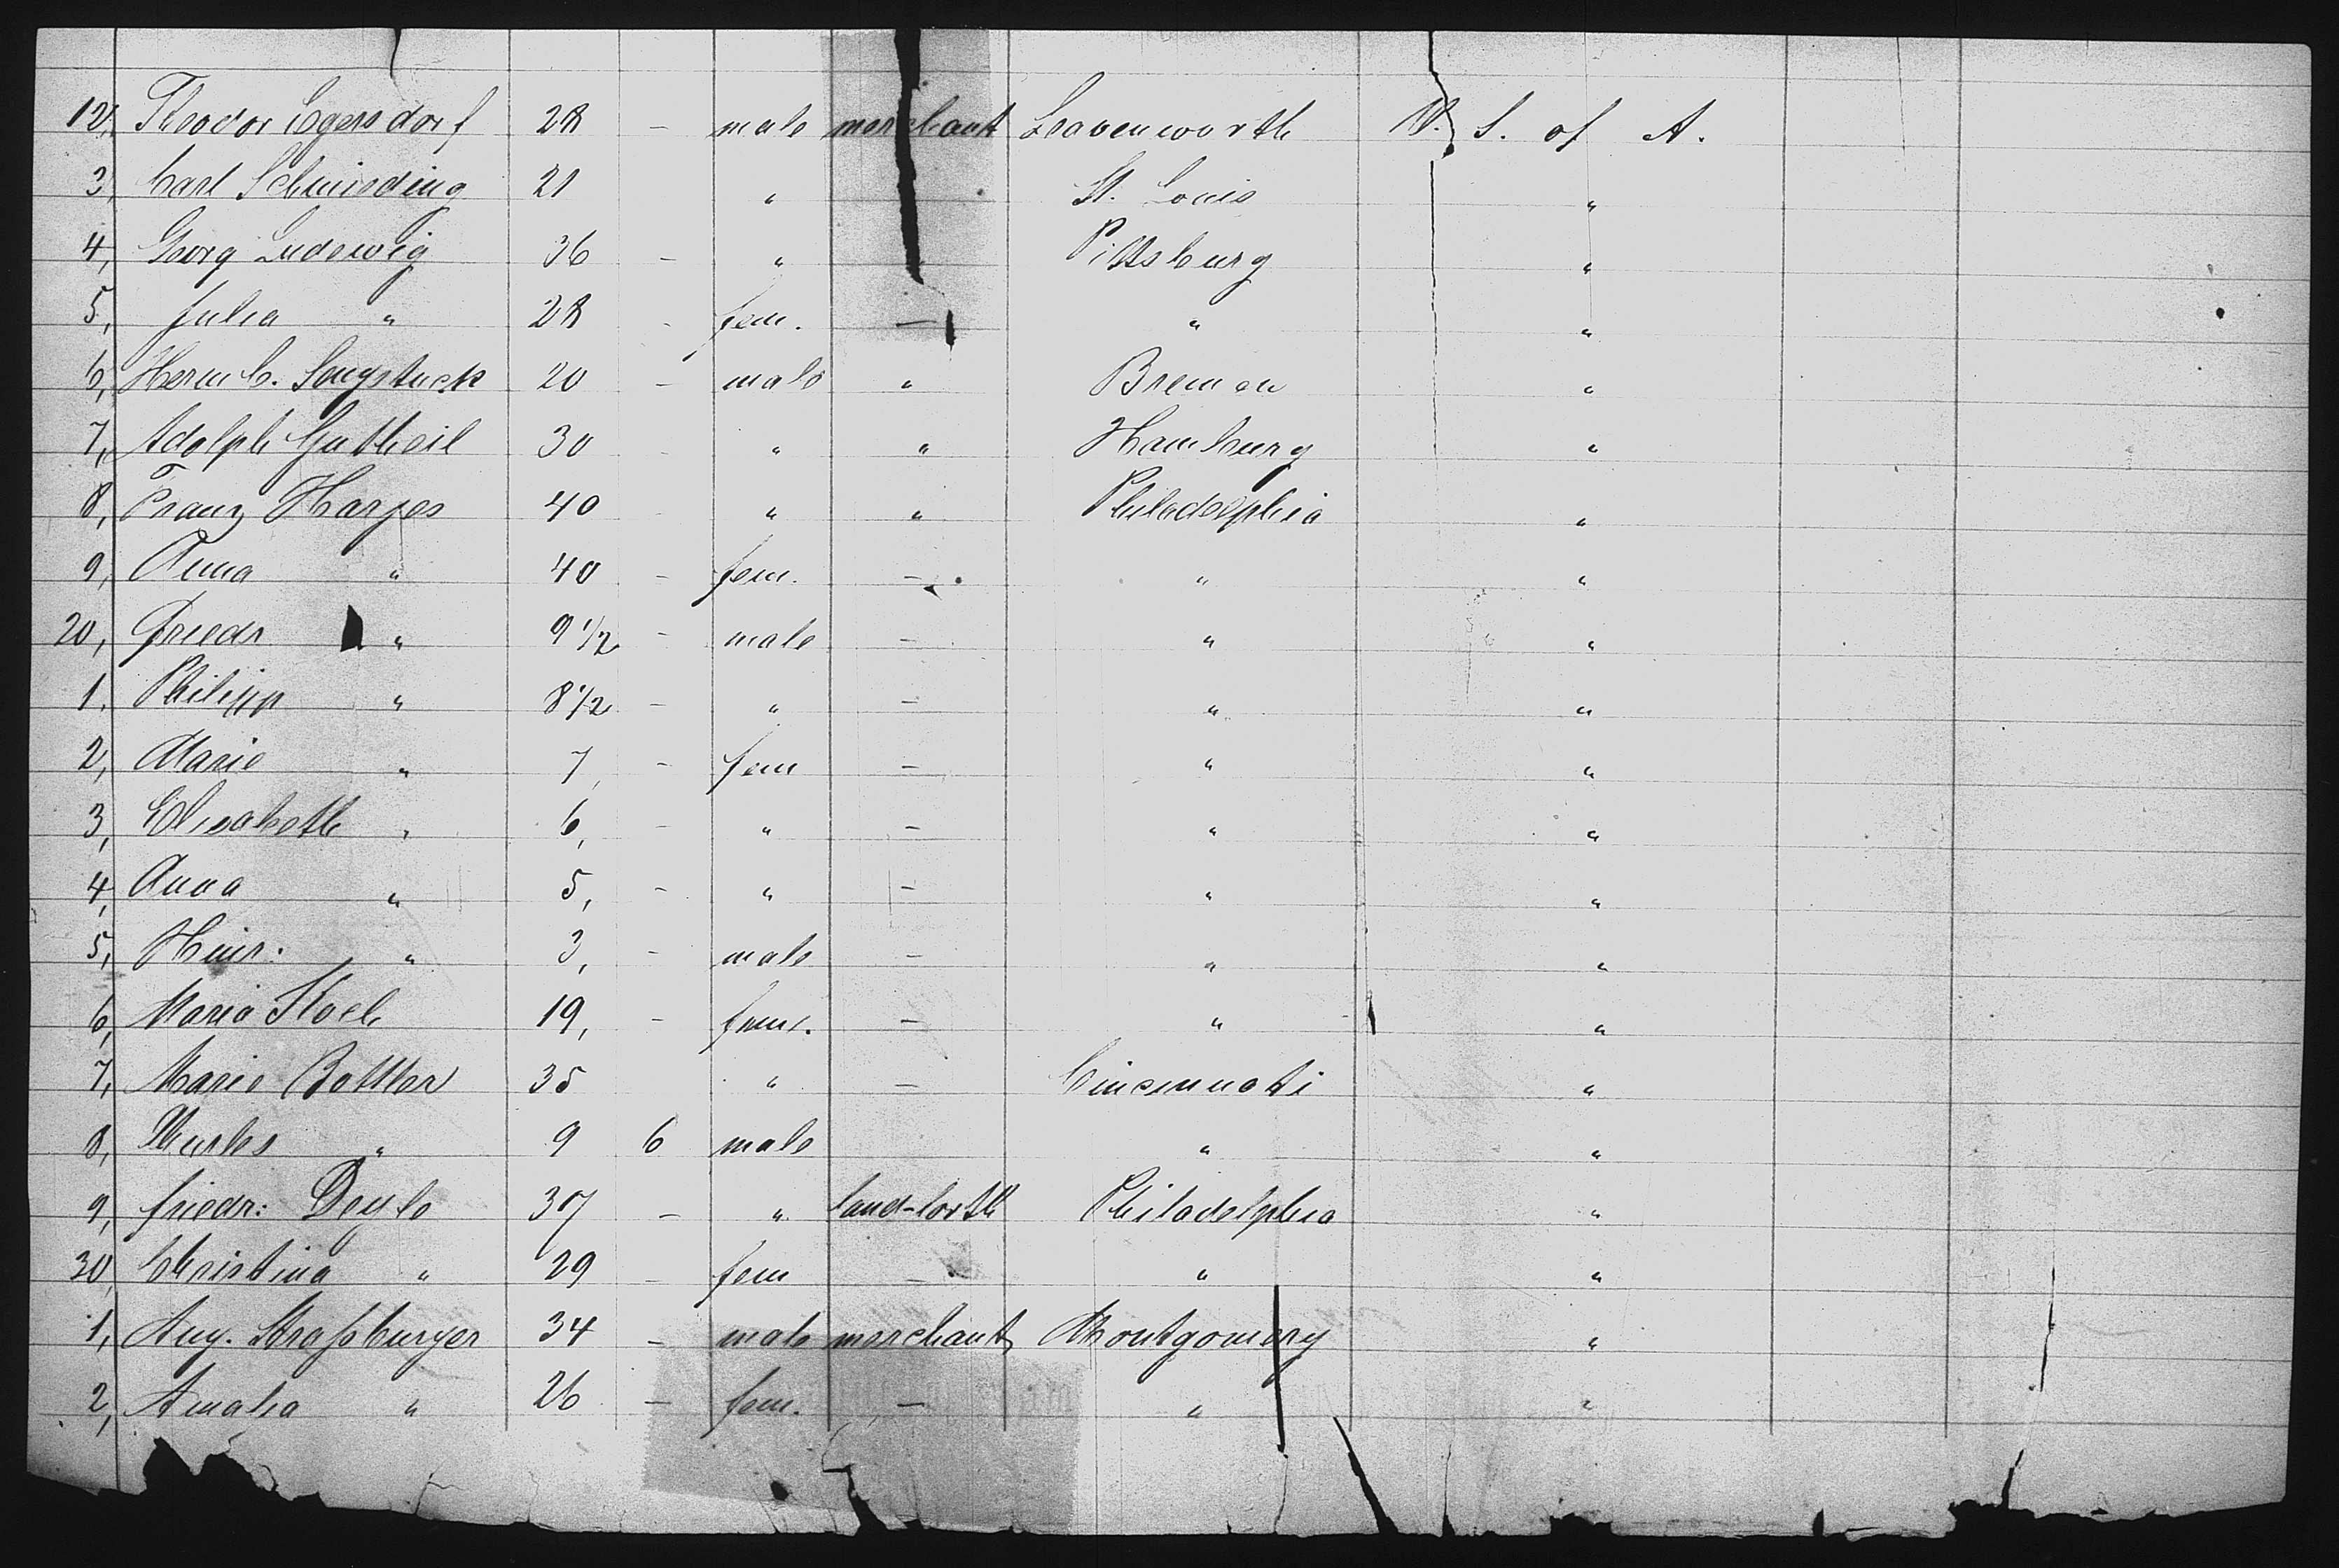 12, Theodor Egersdorf 28 - male merchant Leavenworth U. S. of A.
3, Carl Schmieding 21 " St. Louis "
4, Georg Ludewig 36 - " Pittsburg "
5, Julia " 28 - fem. - " "
6, Herm C. Sengstuck 20 - male " Bremen "
7, Adolph Gutheil 30 - " " Hamburg "
8, Franz Harjes 40 - " " Philadelphia "
9, Anna " 40 - fem. - " "
20, Friedr " 9 1/2 - male - " "
1, Philipp " 8 1/2 - " - " "
2, Marie " 7, - fem - " "
3, Elisabeth " 6, - " - " "
4, Anna " 5, - " - " "
5, Heinr: " 3, - male - " "
6, Maria Koch 19, - fem. - " "
7, Marie Bottler 35 " - Cincinnati "
8, Charles " 9 6 male " "
9, Friedr: Deyle 37 - " land-lorth Philadelphia "
30, Christina " 29 - fem - " "
1, Aug. Straßburger 34 - male merchant Montgomery "
2, Amalia " 26 - fem. - " "